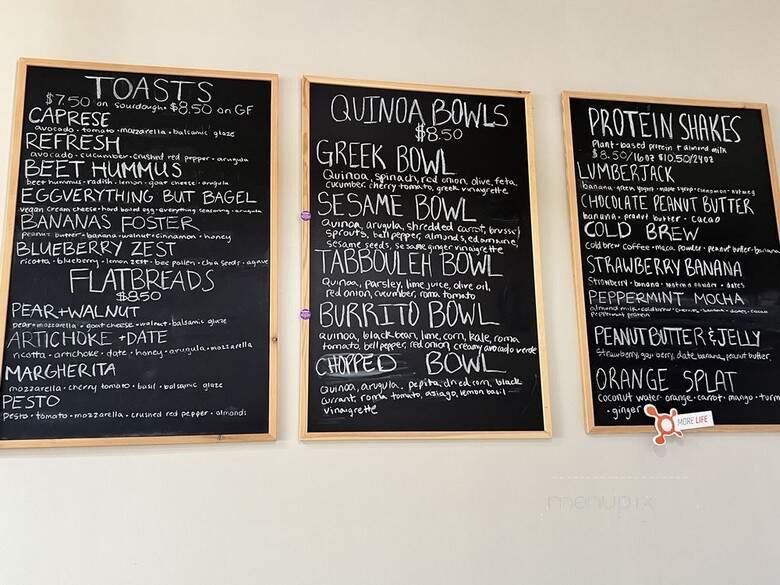 TOASTS
$7.50 on sourdough • $8.50 on GF
CAPRESE
avocado • tomato • mozzarella • balsamic glaze
REFRESH
avocado • cucumber • crushed red pepper • arugula
BEET HUMMUS
beet hummus • radish • lemon • goat cheese • arugula
EGGVERYTHING BUT BAGEL
vegan cream cheese • hard boiled egg • everything seasoning • arugula
BANANAS FOSTER
peanut butter • banana • walnut • cinnamon • honey
BLUEBERRY ZEST
ricotta • blueberry • lemon zest • bee pollen • chia seeds • agave
FLATBREADS
$8.50
PEAR + WALNUT
pear • mozzarella • goat cheese • walnut • balsamic glaze
ARTICHOKE + DATE
ricotta • artichoke • date • honey • arugula • mozzarella
MARGHERITA
mozzarella • cherry tomato • basil • balsamic glaze
PESTO
pesto • tomato • mozzarella • crushed red pepper • almonds
QUINOA BOWLS
$8.50
GREEK BOWL
Quinoa, spinach, red onion, olive, feta,
cucumber, cherry tomato, greek vinaigrette
SESAME BOWL
quinoa, arugula, shredded carrot, brussel
sprouts, bell pepper, almonds, edamame,
sesame seeds, sesame ginger vinaigrette
TABBOULEH BOWL
Quinoa, parsley, lime juice, olive oil,
red onion, cucumber, roma tomato
BURRITO BOWL
quinoa, black bean, lime, corn, kale, roma
tomato, bell pepper, red onion, creamy avocado verde
CHOPPED BOWL
Quinoa, arugula, pepita, dried corn, black
currant, roma tomato, asiago, lemon basil
vinaigrette
PROTEIN SHAKES
Plant-based protein + almond milk
$8.50/16oz $10.50/24oz
LUMBERJACK
banana • greek yogurt • maple syrup • cinnamon • nutmeg
CHOCOLATE PEANUT BUTTER
banana • peanut butter • cacao
COLD BREW
Cold brew coffee • maca powder • peanut butter • banana
STRAWBERRY BANANA
Strawberry • banana • • dates
PEPPERMINT MOCHA
almond milk • coldbrew • • banana • dates • cacao
peppermint protein
PEANUT BUTTER & JELLY
strawberry, goji berry, date, banana, peanut butter
ORANGE SPLAT
coconut water • orange • carrot • mango • turm
• ginger
MORE LIFE
menupix